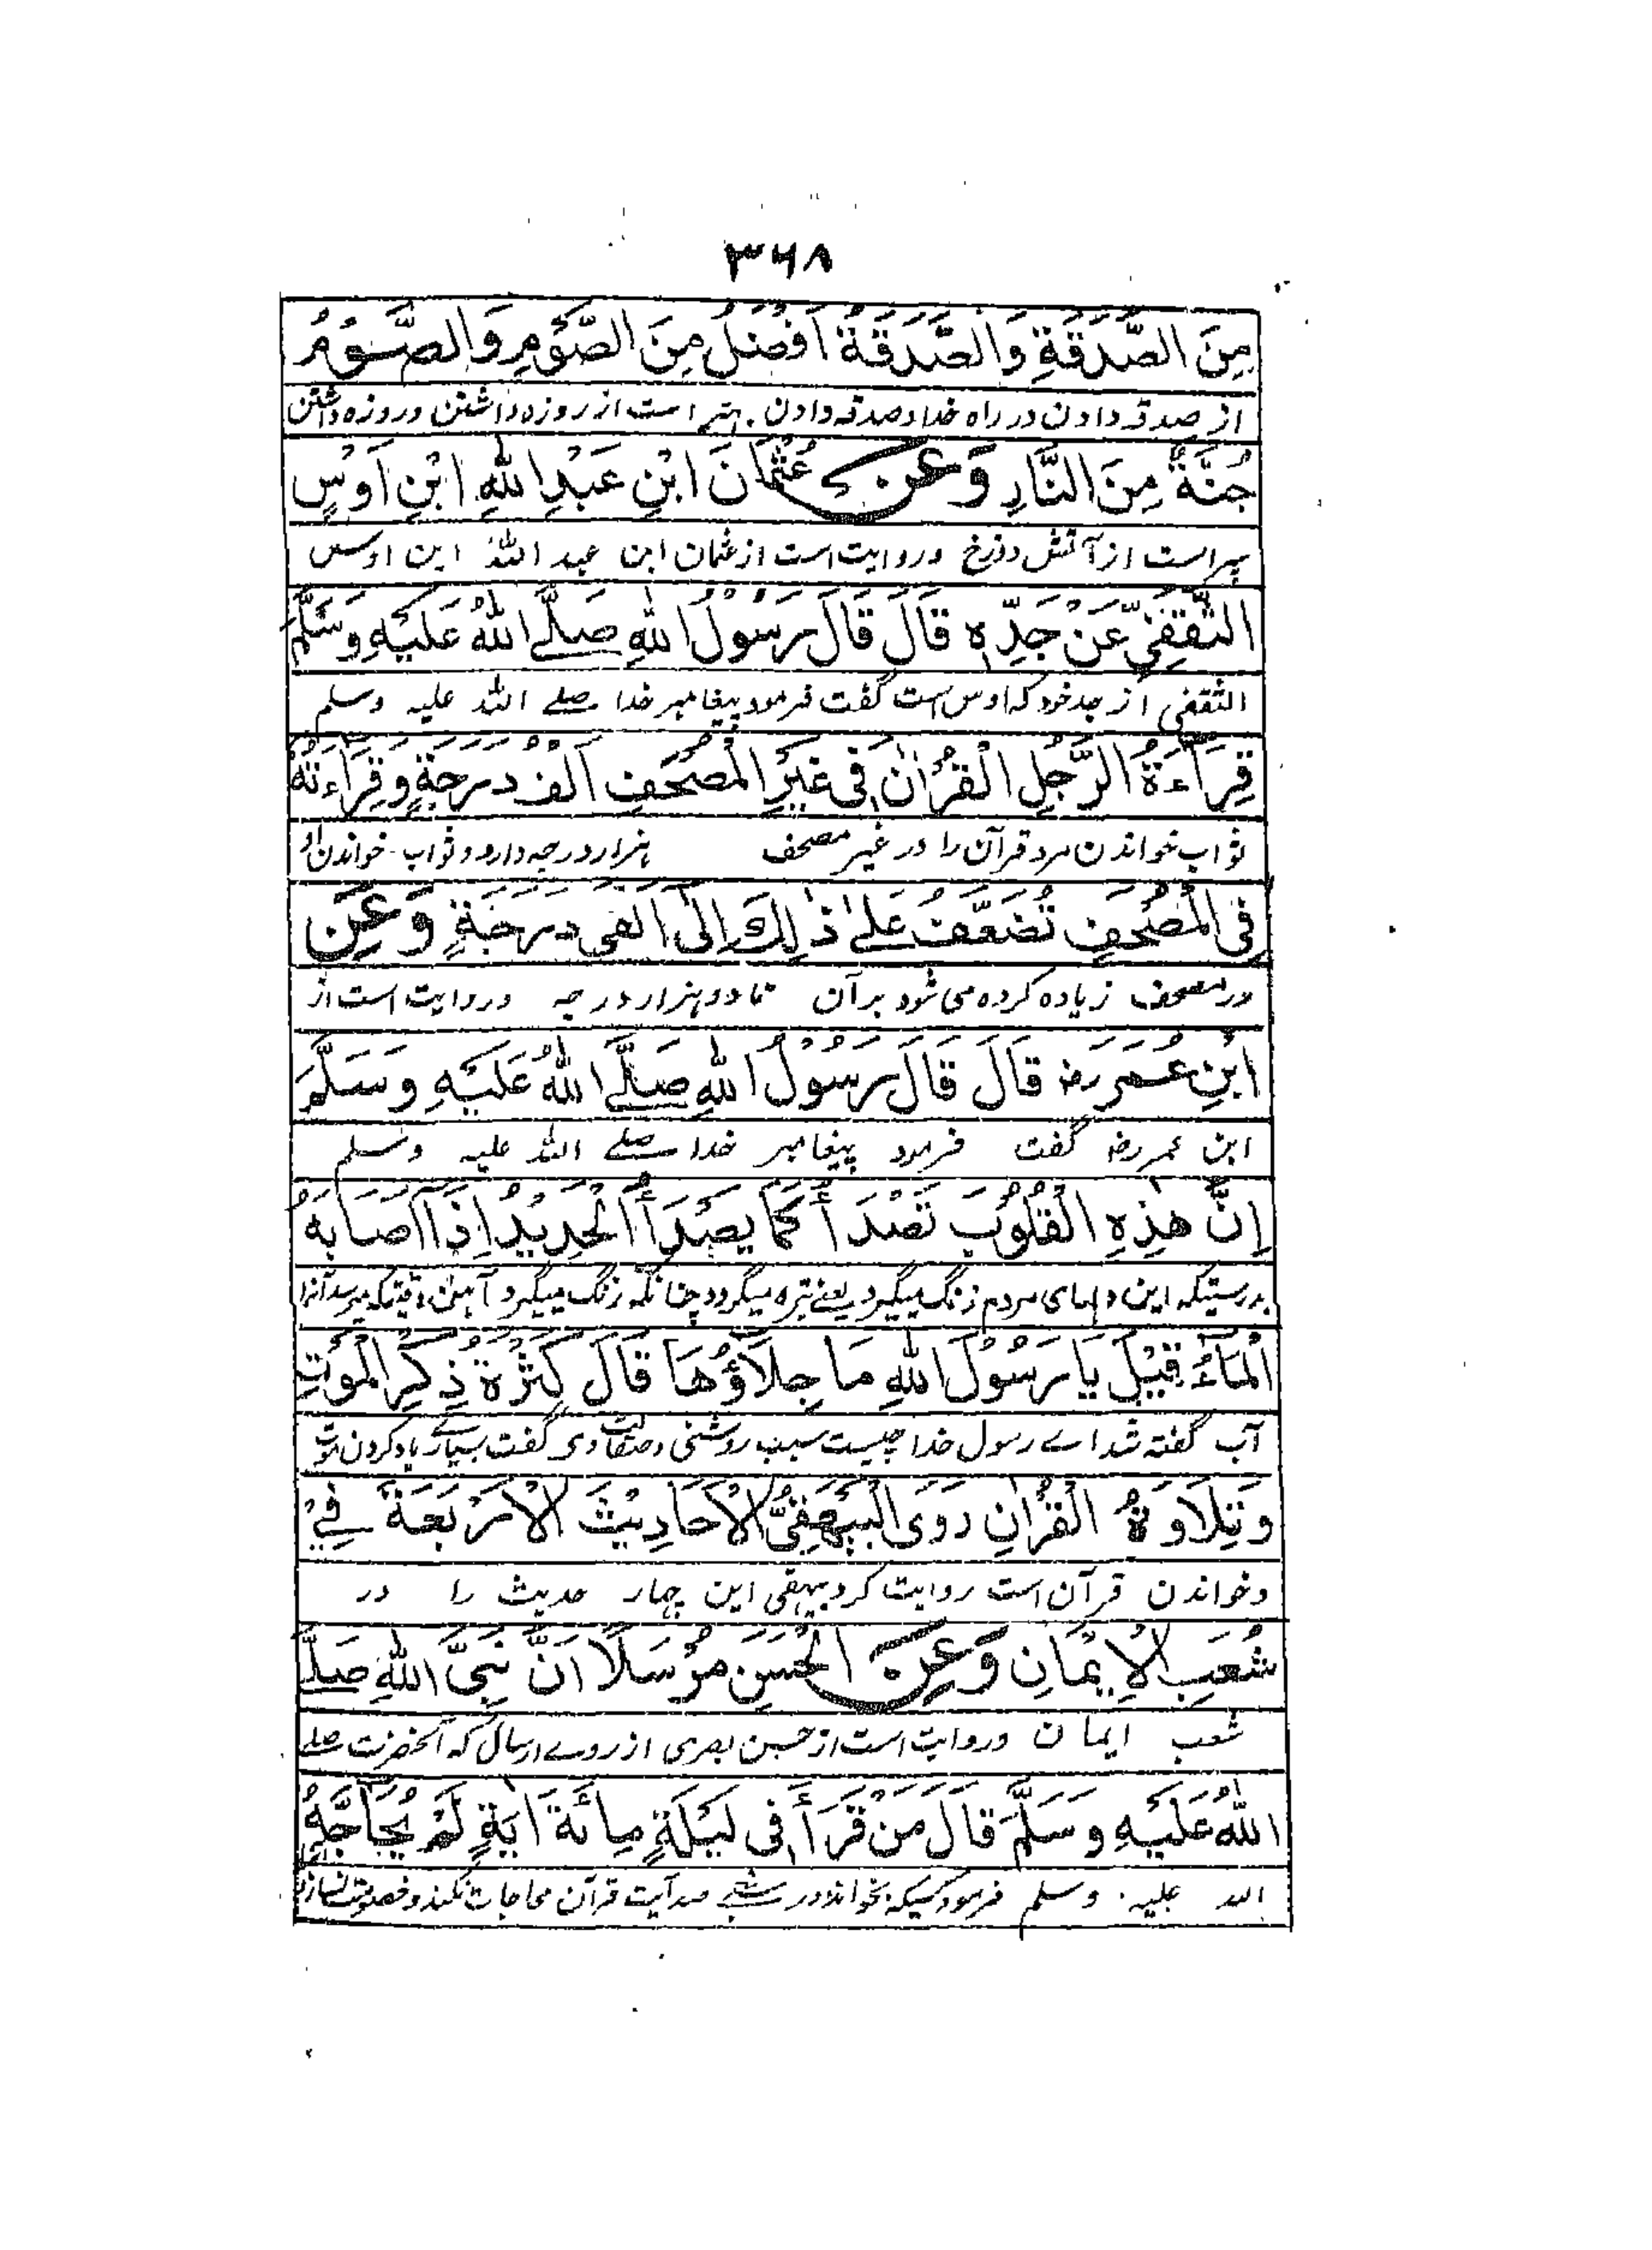 ۳۶۸
مِنَ الصَّدَقَةِ وَالصَّدَقَةُ اَفْضَلُ مِنَ الصَّوْمِ وَالصَّوْمُ
از صدقه دادن در راه خدا و صدقه دادن بهتر است از روزه داشتن و روزه داشتن
جُنَّةٌ مِنَ النَّارِ وَعَنْ عُثْمَانَ ابْنِ عَبْدِ اللّٰهِ ابْنِ اَوْسٍ
سپر است از آتش دوزخ و روایت است از عثمان ابن عبد اللّٰه ابن اوس
الثَّقَفِيِّ عَنْ جَدِّهٖ قَالَ قَالَ رَسُوْلُ اللّٰهِ صَلَّے اللّٰهُ عَلَيْهِ وَسَلَّمَ
الثقفی از جد خود که اوس است گفت فرمود پیغامبر خدا صلے اللّٰه علیه وسلم
قِرَاءَةُ الرَّجُلِ الْقُرْاٰنَ فِیْ غَيْرِ الْمُصْحَفِ اَلْفُ دَرَجَةٍ وَقِرَاءَتُهٗ
ثواب خواندن مرد قرآن را در غیر مصحف هزار درجه دارد و ثواب خواندن او
فِی الْمُصْحَفِ تُضَعَّفُ عَلٰے ذٰلِكَ اِلٰى اَلْفَی دَرَجَةٍ وَعَنِ
در مصحف زیاده کرده می شود بر آن تا دو هزار درجه و روایت است از
ابْنِ عُمَرَ رض قَالَ قَالَ رَسُوْلُ اللّٰهِ صَلَّے اللّٰهُ عَلَيْهِ وَسَلَّمَ
ابن عمر رض گفت فرمود پیغامبر خدا صلے اللّٰه علیه وسلم
اِنَّ هٰذِهِ الْقُلُوْبَ تَصْدَأُ كَمَا يَصْدَأُ الْحَدِيْدُ اِذَا اَصَابَهُ
بدرستیکه این دلهای مردم زنگ میگیرد یعنے تیره میگردد چنانکه زنگ میگیرد آهن وقتیکه میرسد آنرا
الْمَاءُ قِيْلَ يَا رَسُوْلَ اللّٰهِ مَا جِلَاؤُهَا قَالَ كَثْرَةُ ذِكْرِ الْمَوْتِ
آب گفته شد اے رسول خدا چیست سبب روشنی و صقالت وی گفت بسیار یاد کردن موت
وَتِلَاوَةُ الْقُرْاٰنِ رَوَى الْبَيْهَقِيُّ الْاَحَادِيْثَ الْاَرْبَعَةَ فِيْ
و خواندن قرآن است روایت کرد بیهقی این چهار حدیث را در
شُعَبِ الْاِيْمَانِ وَعَنِ الْحَسَنِ مُرْسَلًا اَنَّ نَبِیَّ اللّٰهِ صَلَّے
شعب ایمان و روایت است از حسن بصری از روے ارسال که آنحضرت صلے
اللّٰهُ عَلَيْهِ وَسَلَّمَ قَالَ مَنْ قَرَأَ فِیْ لَيْلَةٍ مِائَةَ اٰيَةٍ لَمْ يُحَاجَّهُ
اللّٰه علیه وسلم فرمود کسیکه بخواند در شبے صد آیت قرآن محاجات نکند و خصومت